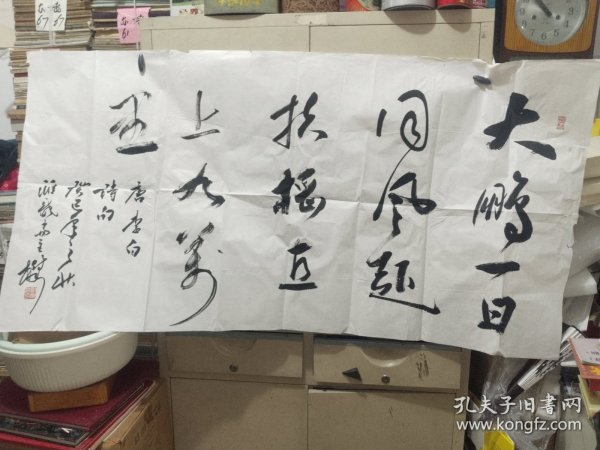 大鹏一日
同风起
扶摇直
上九万
里
唐李白
诗句
癸巳年之秋
孔夫子旧书网
www.kongfz.com